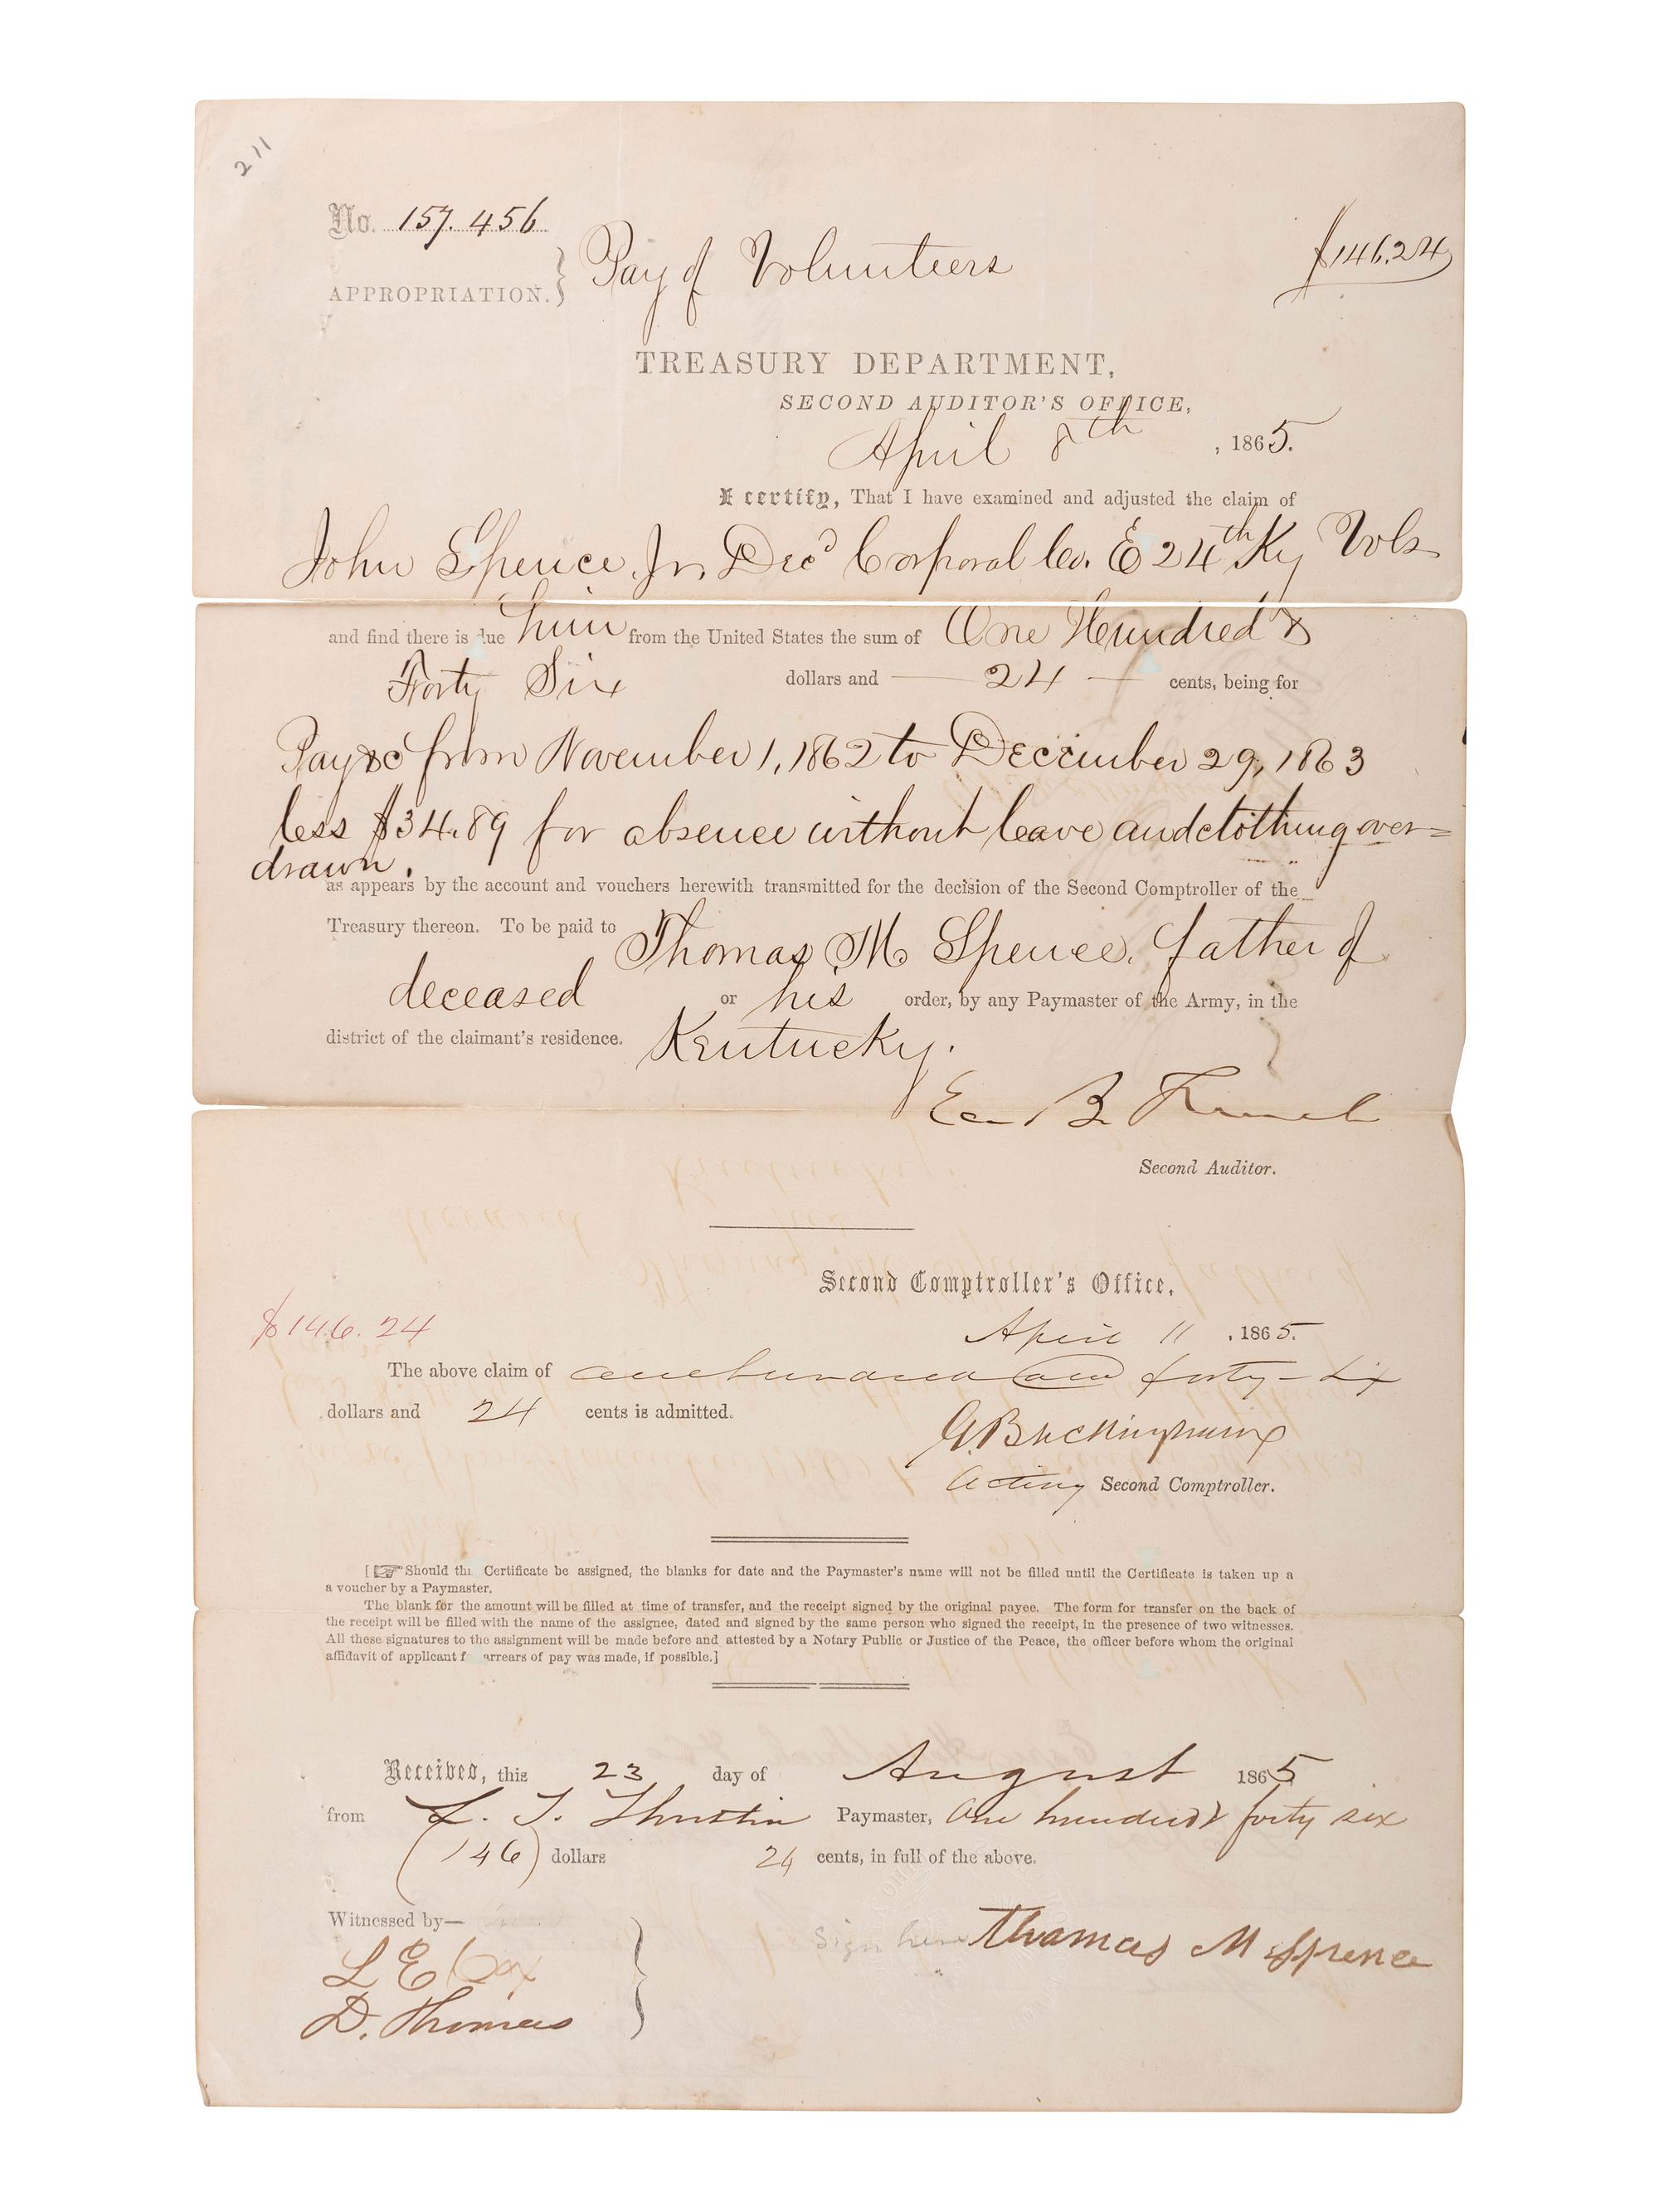 211
No. 157.456
APPROPRIATION. } Pay of Volunteers $146.24
TREASURY DEPARTMENT,
SECOND AUDITOR'S OFFICE,
April 8th, 1865.
I certify, That I have examined and adjusted the claim of
John Spence, Jr, Decd Corporal Co. E 24th Ky Vols
and find there is due him from the United States the sum of One Hundred &
Forty Six dollars and — 24 — cents, being for
Pay &c from November 1, 1862 to December 29, 1863
less $34.89 for absence without leave and clothing over=
drawn.
as appears by the account and vouchers herewith transmitted for the decision of the Second Comptroller of the
Treasury thereon. To be paid to Thomas M Spence, father of
deceased or his order, by any Paymaster of the Army, in the
district of the claimant's residence. Kentucky.
B.
Second Auditor.
Second Comptroller's Office,
$146.24 April 11, 1865.
The above claim of one hundred and forty-six
dollars and 24 cents is admitted.
Acting Second Comptroller.
[☞ Should thi Certificate be assigned, the blanks for date and the Paymaster's name will not be filled until the Certificate is taken up a
a voucher by a Paymaster.
The blank for the amount will be filled at time of transfer, and the receipt signed by the original payee. The form for transfer on the back of
the receipt will be filled with the name of the assignee, dated and signed by the same person who signed the receipt, in the presence of two witnesses.
All these signatures to the assignment will be made before and attested by a Notary Public or Justice of the Peace, the officer before whom the original
affidavit of applicant f arrears of pay was made, if possible.]
Received, this 23 day of August 1865
from L. T. Thustin Paymaster, One hundred & forty six
(146) dollars 24 cents, in full of the above.
Witnessed by—
Sign here Thomas M Spence
L E Cox
D. Thomas